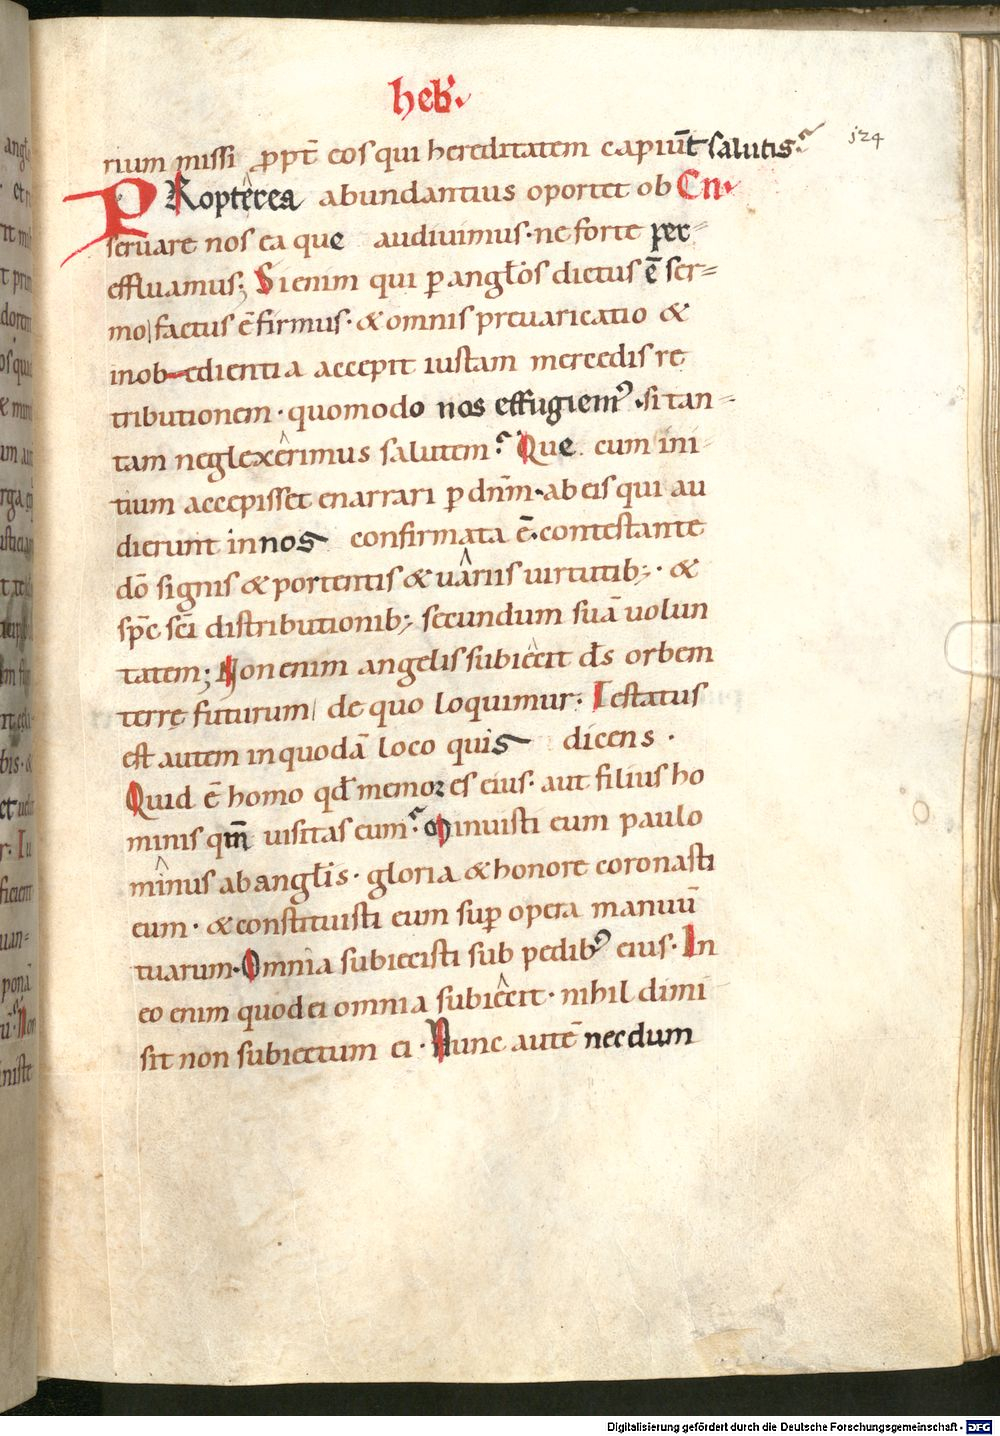 heb̄.
124
rium missi ꝓpt̄ eos qui hereditatem capiūt salutis.
PRopterea abundantius oportet ob Cn.
seruare nos ea que audiuimus. ne forte per-
effluamus; Si enim qui ꝑ angl̄os dictus ē ser=
mo factus ē firmus. & omnis preuaricatio &
inob-edientia accepit iustam mercedis re
tributionem. quomodo nos effugiemꝰ. si tan-
tam neglexerimus salutem. Que cum ini-
tium accepisset enarrari ꝑ dn̄m. ab eis qui au
dierunt in nos confirmata ē. contestante
dō signis & portentis & uariis uirtutib;. &
sp̄c sc̄i distributionib; secundum suā uolun
tatem; Non enim angelis subiecit ds̄ orbem
terrę futurum de quo loquimur. Testatus
est autem in quodā loco quis dicens .
Quid ē homo qd̄ memor es eius. aut filius ho
minis qm̄ uisitas eum. Minuisti eum paulo
minus ab angl̄is. gloria & honore coronasti
eum. & constituisti eum suꝑ opera manuū
tuarum. Omnia subiecisti sub pedibꝰ eius. In
eo enim quod ei omnia subiecit. nihil dimi
sit non subiectum ei. Nunc autē necdum
Digitalisierung gefördert durch die Deutsche Forschungsgemeinschaft - DFG